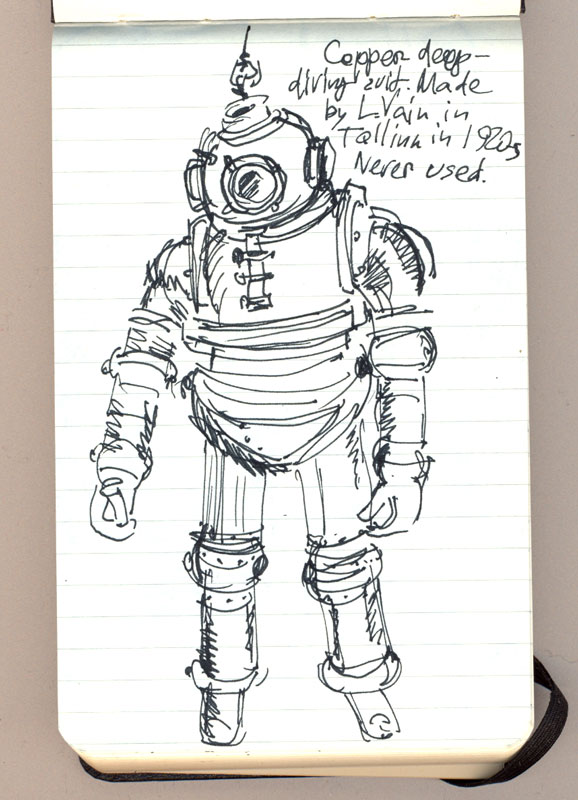 Copper deep-
diving suit. Made
by L. Vain in
Tallinn in 1920s
Never used.